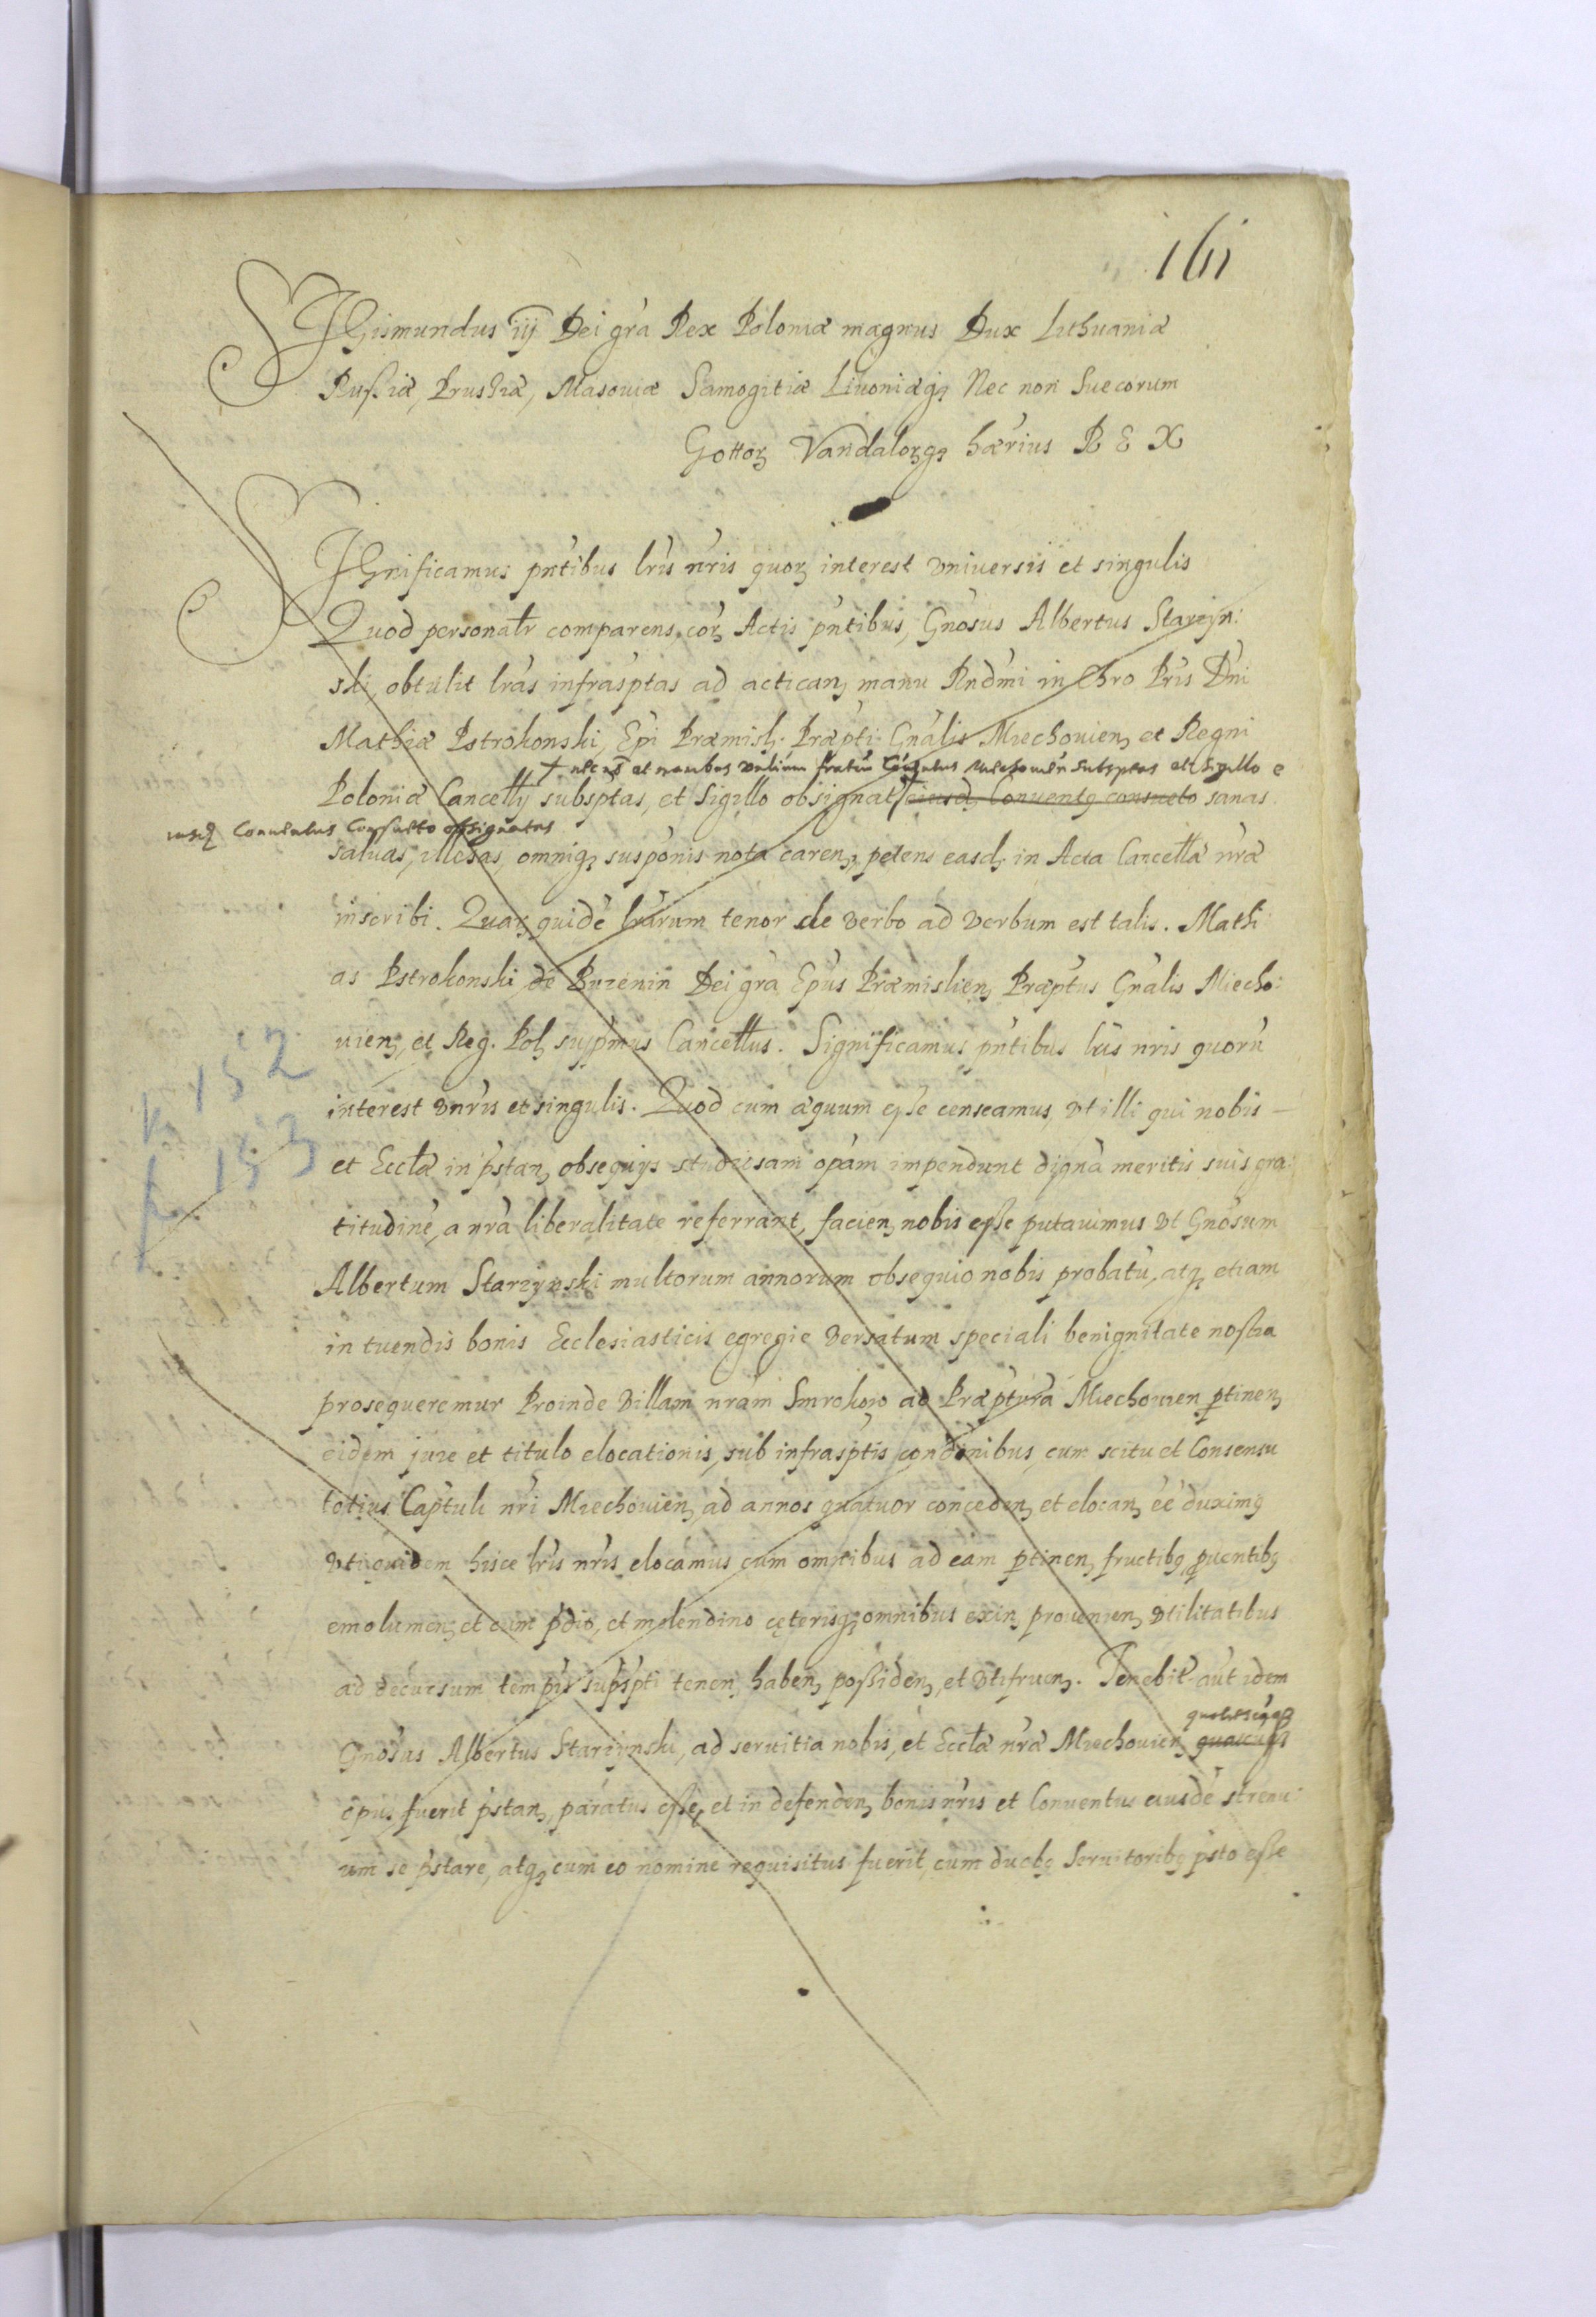 161
SIGismundus iij Dei gra Rex Poloniæ magnus Dux Lithuaniæ
Rußiæ, Prussiæ, Masouiæ Samogitiæ Liuoniæqꝫ Nec non Suecorum
Gottoꝝ Vandaloꝝqꝫ hærius REX
SIGnificamus pntibus lris nris quoꝝ interest vniversis et singulis
Quod personalr comparens, coꝝ Actis pntibus, Gnosus Albertus Starzÿn:
ski, obtulit lras infrasptas ad actican, manu Rndmi in Chro Pris Dni
Mathiæ Pstrokonski, Epi Præmisl. Præpti Gnalis Miechouien, et Regni
+ nec no et manibus fratru Coñuentus Miechouien subsptas et Sigillo e
Poloniæ Cancellÿ subsptas, et Sigillo obsignat eiusd, Conuentꝰ consueto sanas
iusdꝫ Conuentus Consueto obsignatas
saluas, illesas, omniqꝫ susponis nota caren, petens easdꝫ in Acta Cancellæ nræ
inscribi. Quaꝝ quide lrarum tenor de verbo ad verbum est talis. Mathi
as Pstrokonski de Buzenin Dei gra Epus Præmislien, Præptus Gnalis Miecho:
uien, et Reg. Pol, supmus Cancellus. Significamus pntibus lris nris quoru
k 152
interest vnris et singulis. Quod cum æquum esse censeamus, vt illi qui nobis
k 153
et Eccłæ in pstan, obsequÿs studiosam opam impendunt digna meritis suis gra:
titudine, a nra liberalitate referrant, facien, nobis esse putauimus vt Gnosum
Albertum Starzynski multorum annorum obsequio nobis probatu, atqꝫ etiam
in tuendis bonis Ecclesiasticis egregie versatum speciali benignitate nostra
prosequeremur Proinde villam nram Smrokow ad Præptura Miechouien ptinen,
eidem jure et titulo elocationis, sub infrasptis condonibus, cum scitu et Consensu
totius Captuli nri Miechouien, ad annos quatuor conceden, et elocan, ee duximꝰ
vti quidem hisce lris nris elocamus cum omnibus ad eam ptinen, fructibꝰ puentibꝰ
emolumen, et cum pdio, et molendino cęterisqꝫ omnibus exin, prouenien, vtilitatibus
ad decursum tempis supspti tenen, haben, poßiden, et vtifruen. Tenebit aut idem
quotiescuqꝫ
Gnosus Albertus Starzynski, ad seruitia nobis, et Eccłæ nræ Miechouien, quaecuqꝫ
opus fuerit pstan, paratus esse, et in defenden, bonis nris et Conuentus eiusde strenu
um se pstare, atqꝫ cum eo nomine requisitus fuerit, cum duobꝰ Seruitoribꝰ psto esse